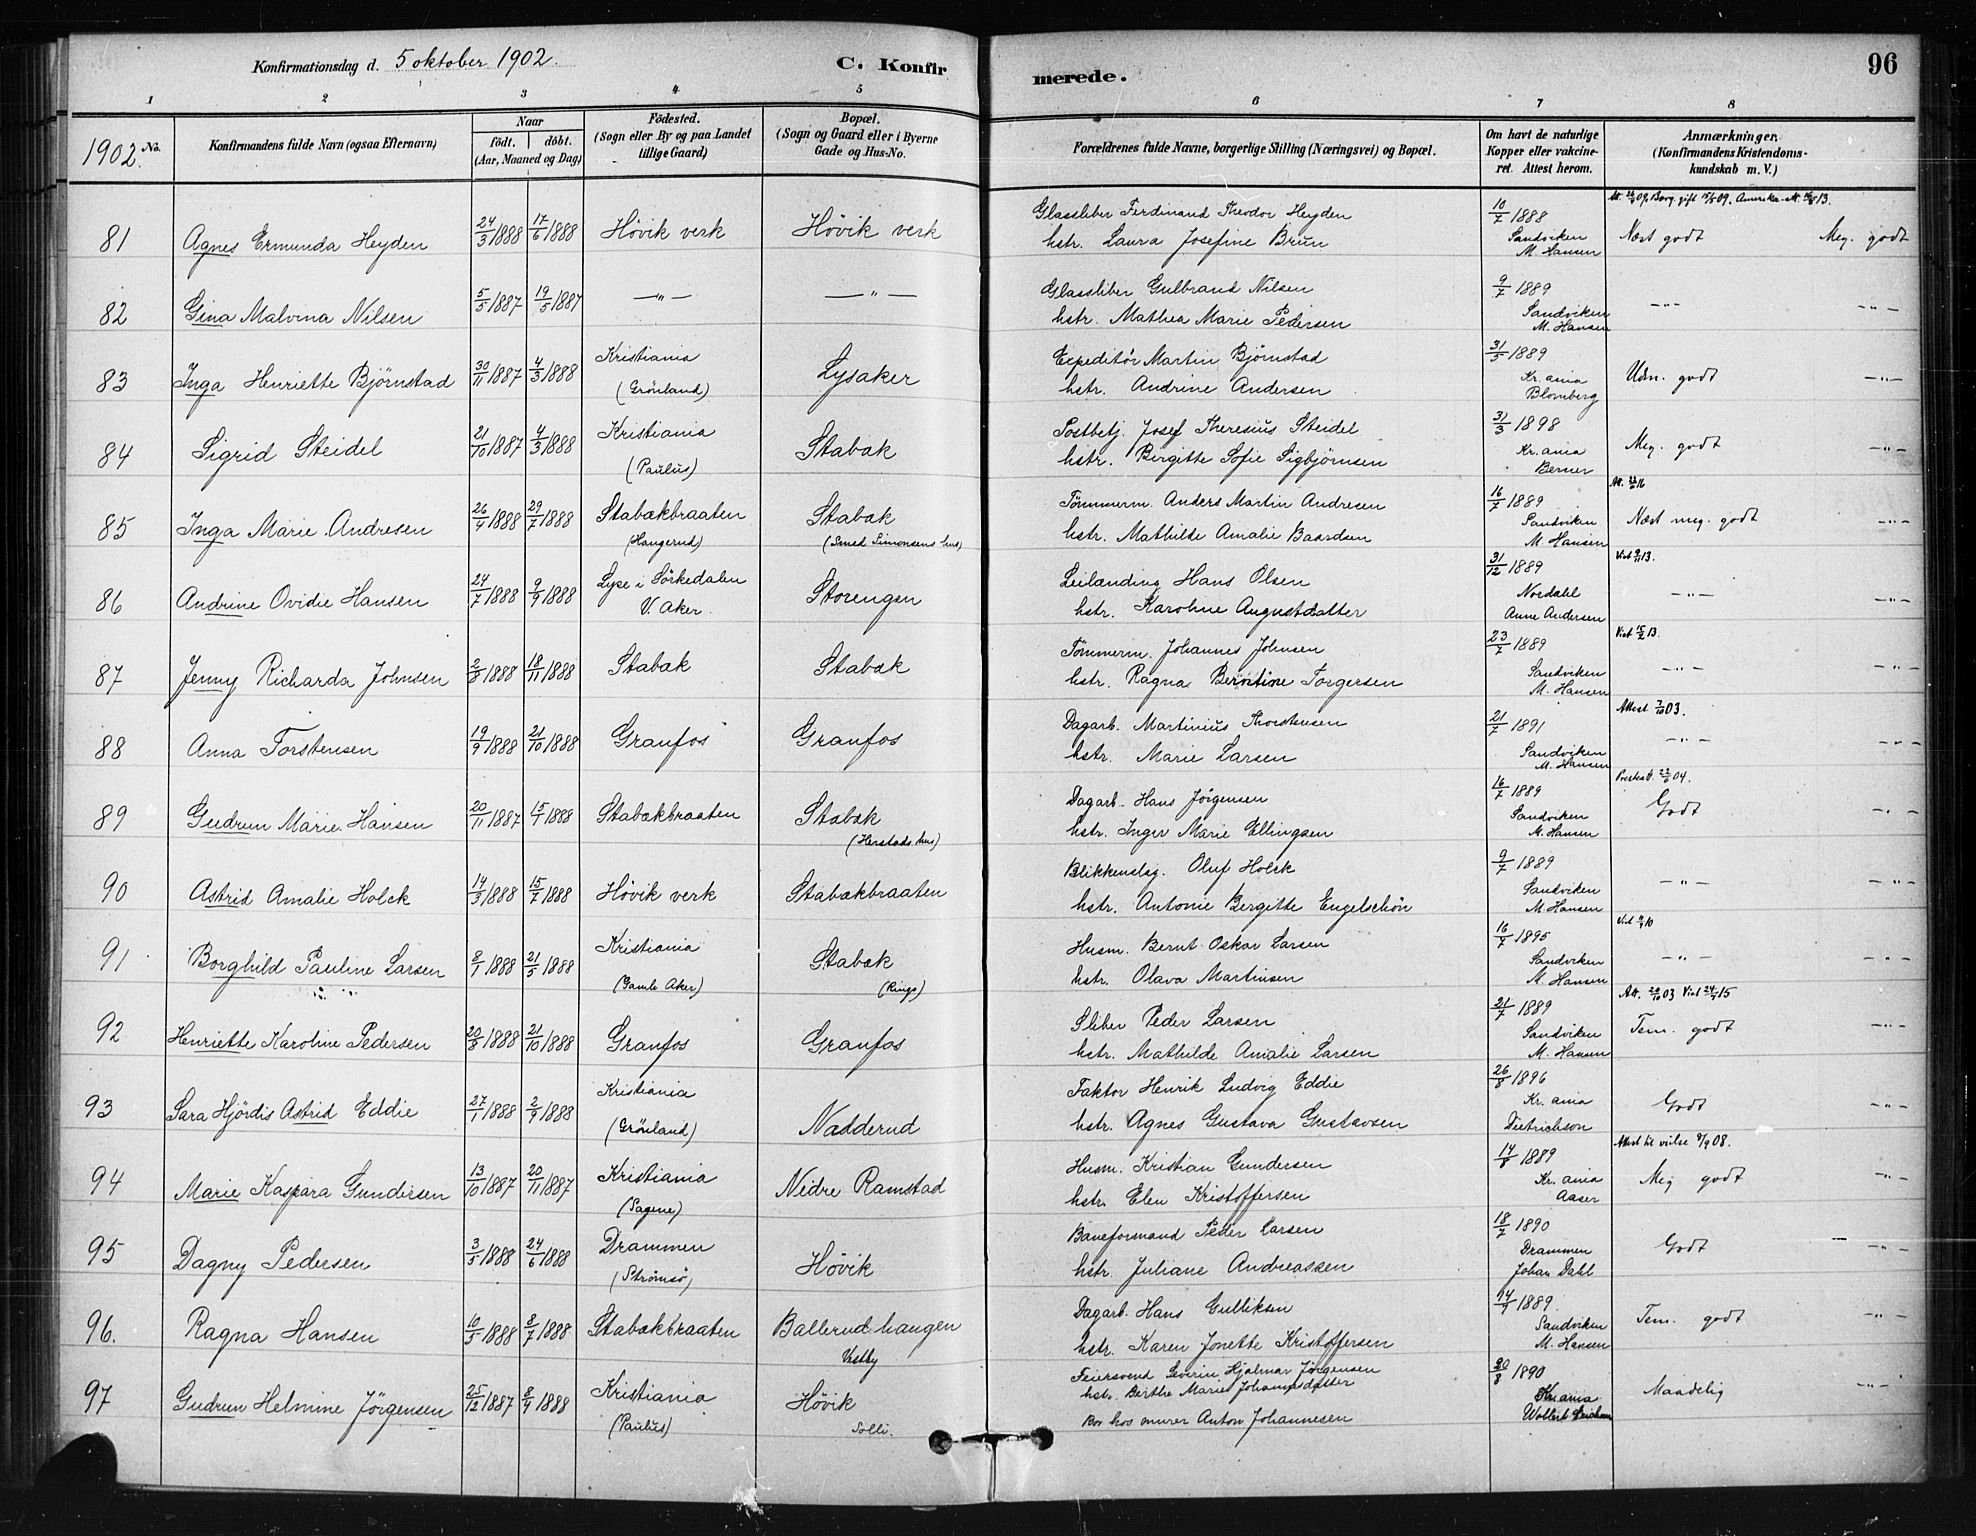 Konfirmationsdag d. 5 oktober 1902. C. Konfirmerede. 96
1 2 3 4 5 6 7 8
1902. No.
Konfirmandens fulde Navn (ogsaa Efternavn)
Naar
födt. döbt.
(Aar, Maaned og Dag)
Födested.
(Sogn eller By og paa Landet
tillige Gaard)
Bopæl.
(Sogn og Gaard eller i Byerne
Gade og Hus-No.
Forældrenes fulde Navne, borgerlige Stilling (Næringsvei) og Bopæl.
Om havt de naturlige
Kopper eller vakcine-
ret. Attest herom.
Anmærkninger.
(Konfirmandens Kristendoms-
kundskab m. V.)
81 Agnes Ermunda Heyden 24/3 1888 17/6 1888 Høvik verk Høvik verk
Glassliber Ferdinand Theodor Heyden
hstr. Laura Josefine Brun
10/7 1888
Sandviken
M. Hansen
Næst godt Meg. godt
82 Gina Malvina Nilsen 5/5 1887 19/5 1887 —"— —"—
Glassliber Gulbrand Nilsen
hstr. Mathea Marie Pedersen
9/7 1889
Sandviken
M. Hansen
—"— —"—
83 Inga Henriette Björnstad 30/11 1887 4/3 1888 Kristiania
(Grönland)
Lysaker
Expeditör Martin Björnstad
hstr. Andrine Andersen
31/5 1889
Kr. ania
Blomberg
Udm. godt —"—
84 Sigrid Steidel 21/10 1887 4/3 1888 Kristiania
(Paulus)
Stabæk
Postbetj. Josef Theresius Steidel
hstr. Bergitte Sofie Sigbjörnsen
31/3 1898
Kr. ania
Berner
Meg. godt —"—
85 Inga Marie Andresen 26/4 1888 29/7 1888 Stabækbraaten
(Haugerud)
Stabæk
(Smed Simonsens hus)
Tömmerm. Anders Martin Andresen
hstr. Mathilde Amalie Baardsen
16/7 1889
Sandviken
M. Hansen
Næst meg. godt —"—
86 Andrine Ovidie Hansen 24/7 1888 9/9 1888 Lyse i Sörkedalen
V. Aker.
Storengen
Leilænding Hans Olsen
hstr. Karoline Augustdatter
31/12 1889
Nordahl
Anne Andersen
—"— —"—
87 Jenny Richarda Johnsen 2/8 1888 18/11 1888 Stabæk Stabæk
Tömmerm. Johannes Johnsen
hstr. Ragna Berntine Torgersen
23/7 1889
Sandviken
M. Hansen
Vist 15/2 13.
—"— —"—
88 Anna Torstensen 19/9 1888 21/10 1888 Granfos Granfos
Dagarb. Martinius Thorstensen
hstr. Marie Larsen
21/7 1891
Sandviken
M. Hansen
Attest 7/10 03.
—"— —"—
89 Gudrun Marie Hansen 20/11 1887 15/1 1888 Stabækbraaten Stabæk
(Herstads hus)
Dagarb. Hans Jörgensen
hstr. Inger Marie Ellingsen
16/7 1889
Sandviken
M. Hansen
Godt —"—
90 Astrid Amalie Holck 14/3 1888 15/7 1888 Høvik verk Stabækbraaten
Blikkenslag. Oluf Holck
hstr. Antonie Bergitte Engelschön
9/7 1889
Sandviken
M. Hansen
—"— —"—
91 Borghild Pauline Larsen 8/1 1888 21/5 1888 Kristiania
(Gamle Aker)
Stabæk
(Rings)
Husm. Bernt Oskar Larsen
hstr. Olava Martinsen
16/7 1895
Sandviken
M. Hansen
—"— —"—
92 Henriette Karoline Pedersen 20/8 1888 21/10 1888 Granfos Granfos
Sliber Peder Larsen
hstr. Mathilde Amalie Larsen
21/7 1889
Sandviken
M. Hansen
Att. 20/10 03
Tem. godt —"—
93 Sara Hjördis Astrid Eddie 27/1 1888 2/9 1888 Kristiania
(Grönland)
Nadderud
Faktor Henrik Ludvig Eddie
hstr. Agnes Gustava Gustavsen
26/8 1896
Kr. ania
Dietrichson
Godt —"—
94 Marie Kaspara Gundersen 13/10 1887 20/11 1887 Kristiania
(Sagene)
Nedre Ramstad
Husm. Kristian Gundersen
hstr. Elen Kristoffersen
14/8 1889
Kr. ania
Aaser
Attest til vielse 9/9 08.
Meg godt —"—
95 Dagny Pedersen 3/5 1888 24/6 1888 Drammen
(Strömsö)
Høvik
Baneformand Peder Larsen
hstr. Juliane Andreassen
18/7 1890
Drammen
Johan Dahl
Godt —"—
96. Ragna Hansen 10/5 1888 8/7 1888 Stabækbraaten Ballerud haugen
Vestby
Dagarb. Hans Gulliksen
hstr. Karen Jonette Kristoffersen
14/9 1889.
Sandviken
M. Hansen
Tem. godt —"—
97 Gudrun Helmine Jörgensen 25/12 1887 8/4 1888 Kristiania
(Paulus)
Høvik
Solli.
Feiersvend Severin Hjalmar Jörgensen
hstr. Berthe Marie Johannesdatter
Bor hos murer Anton Johannesen
20/8 1890
Kr. ania
Maadelig —"—